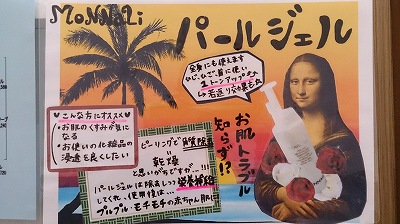 MoNNaLi
パールジェル
全身にも使えます
ひじ、ひざ、首に使い
1トーンアップ
→若返り効果も
お肌トラブル
知らず!?
♥こんな方にオススメ♥
・お肌のくすみが気に
なる
・お使いの化粧品の
浸透も良くしたい
ピーリングで角質除去
乾燥
と思いがちですが…!!!
パールジェルは除去しつつ栄養補給
してくれ、使用後は…
プルプル・モチモチの赤ちゃん肌に